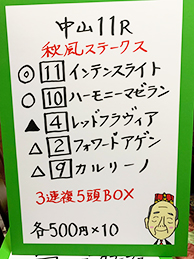 中山11R
秋風ステークス
◎ 11 インテンスライト
○ 10 ハーモニーマゼラン
▲ 4 レッドフラヴィア
△ 2 フォワードアゲン
△ 9 カルリーノ
3連複5頭BOX
各500円×10